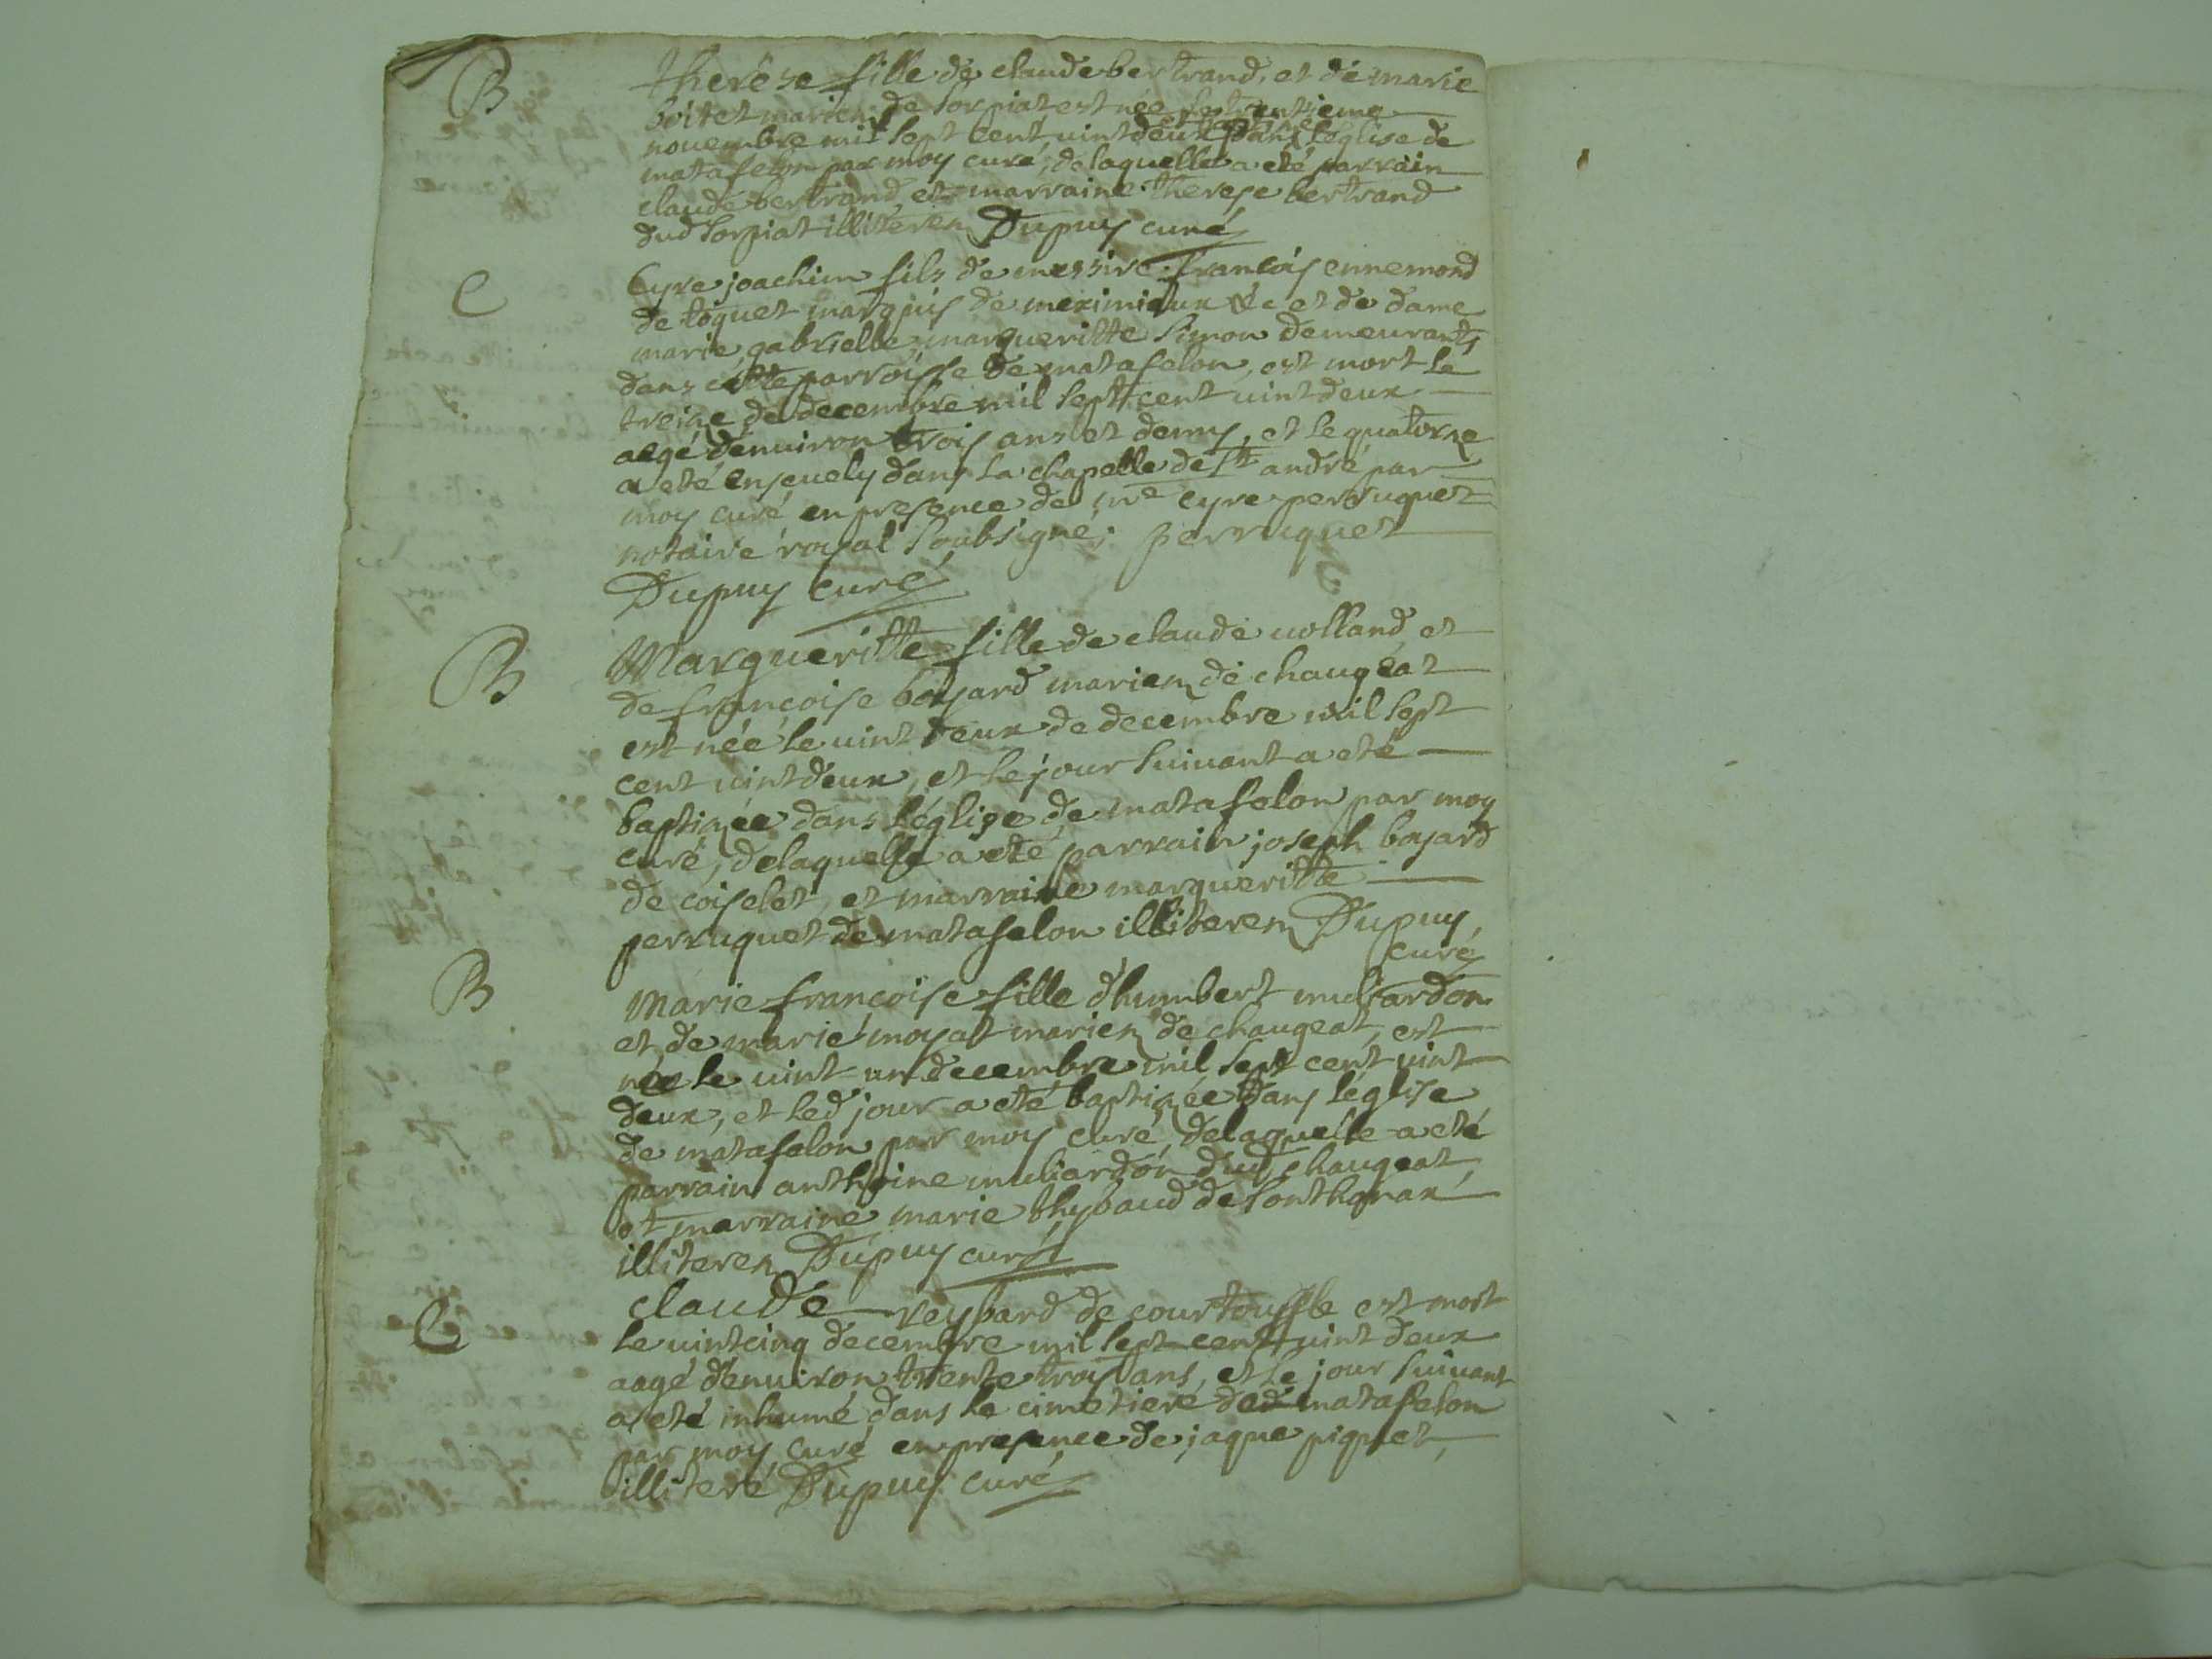 B
therése fille de claude bertrand, et de marie
boitet mariez de Corpiat est née le trentieme
novembre mil sept cent vint deux dans l'eglise de
matafelon par moy curé, de laquelle a eté parrain
claude bertrand, et marraine therese bertrand
dud Corpiat illiterez Dupuy curé
C
Cyre joachim fils de messire francois ennemond
de toquet marquis de meximieux &c et de dame
marie gabrielle margueritte Simon demeurants
dans cette parroisse de matafelon, est mort le
treize de decembre mil sept cent vint deux
aegé denviron trois ans et demy, et le quatorze
a eté ensevely dans la chapelle de st andré par
moy curé en presence de me cyre perruquet
notaire royal soubsigné; perruquet
Dupuy curé
B
Margueritte fille de claude volland et
de françoise bojard mariez de chaugeat
est née le vint deux de decembre mil sept
cent vint deux, et le jour suivant a eté
baptizée dans l'eglise de matafelon par moy
curé, de laquelle a eté parrain joseph bojard
de coiselet, et marraine margueritte
perruquet de matafelon illiterez Dupuy
curé
B
Marie francoise fille d'humbert muliardon
et de marie moyat mariez de chaugeat, est
née le vint un decembre mil sept cent vint
deux, et led jour a eté baptizée dans l'eglise
de matafelon par moy curé, de laquelle a eté
parrain anthoine muliardon dud chaugeat,
et marraine marie thybaud de Sonthonax
illiterez Dupuy curé
C
claude reybard de courtouffle est mort
le vintcinq decembre mil sept cent vint deux
aagé d'environ trente trois ans, et le jour suivant
a eté inhumé dans le cimetiere ded matafelon
par moy curé en presence de jaque piquet,
illiteré Dupuy curé